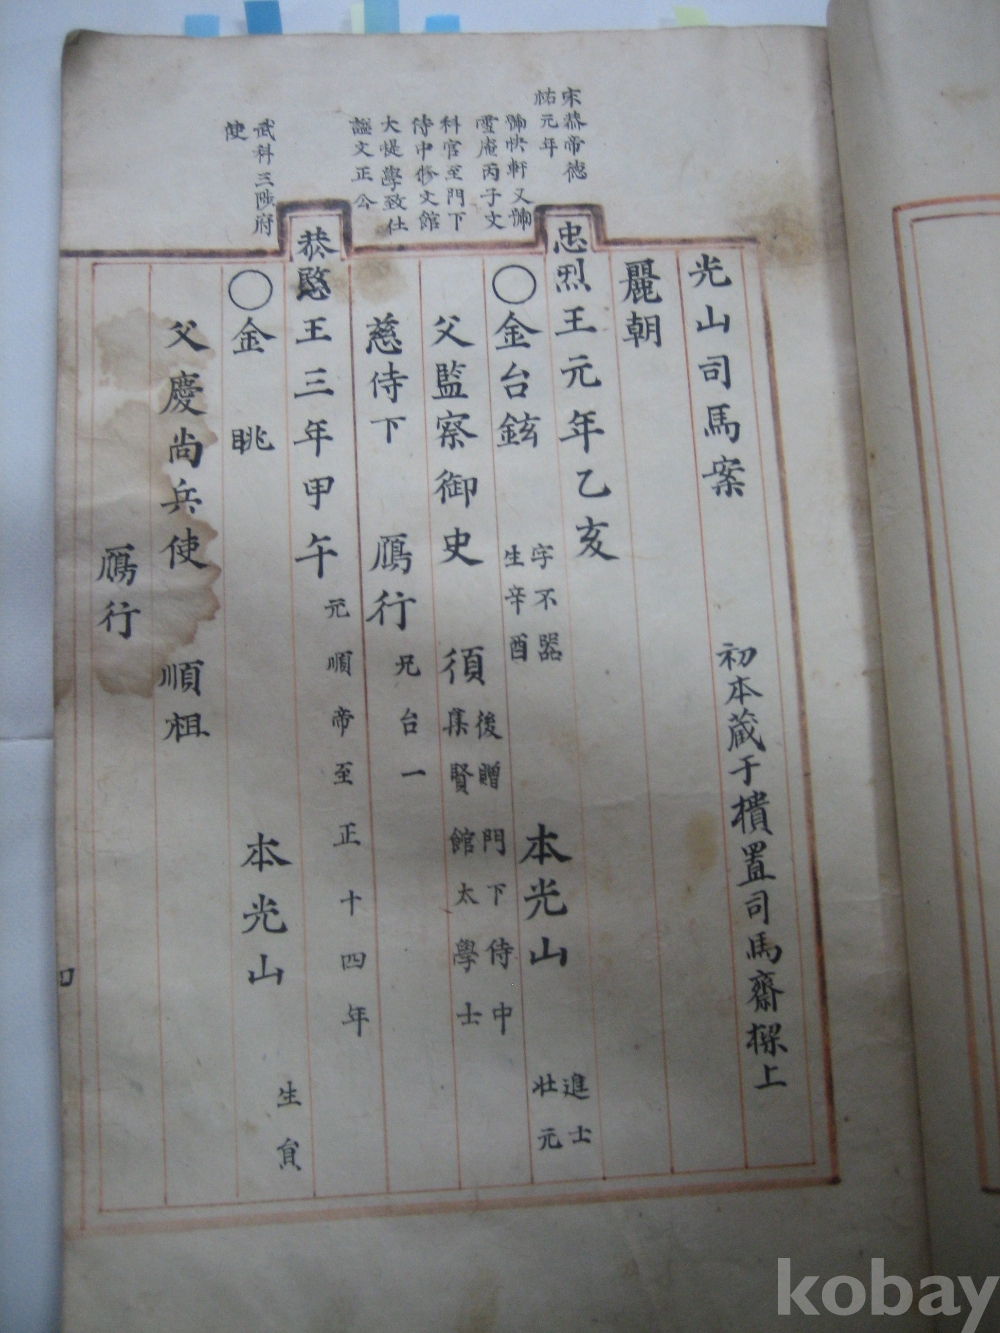 光山司馬案
初本藏于樻置司馬齋樑上
麗朝
宋恭帝德
祐元年
忠烈王元年乙亥
號快軒又號
雪庵丙子文
科官至門下
侍中修文館
大提學致仕
諡文正公
○金台鉉
字不器
生辛酉
本光山
進士
壯元
父監察御史
須
後贈門下侍中
集賢館太學士
慈侍下
鴈行
兄台一
恭愍王三年甲午
元順帝至正十四年
武科三陟府
使
○金
晀
本光山
生員
父慶尚兵使
順祖
鴈行
kobay